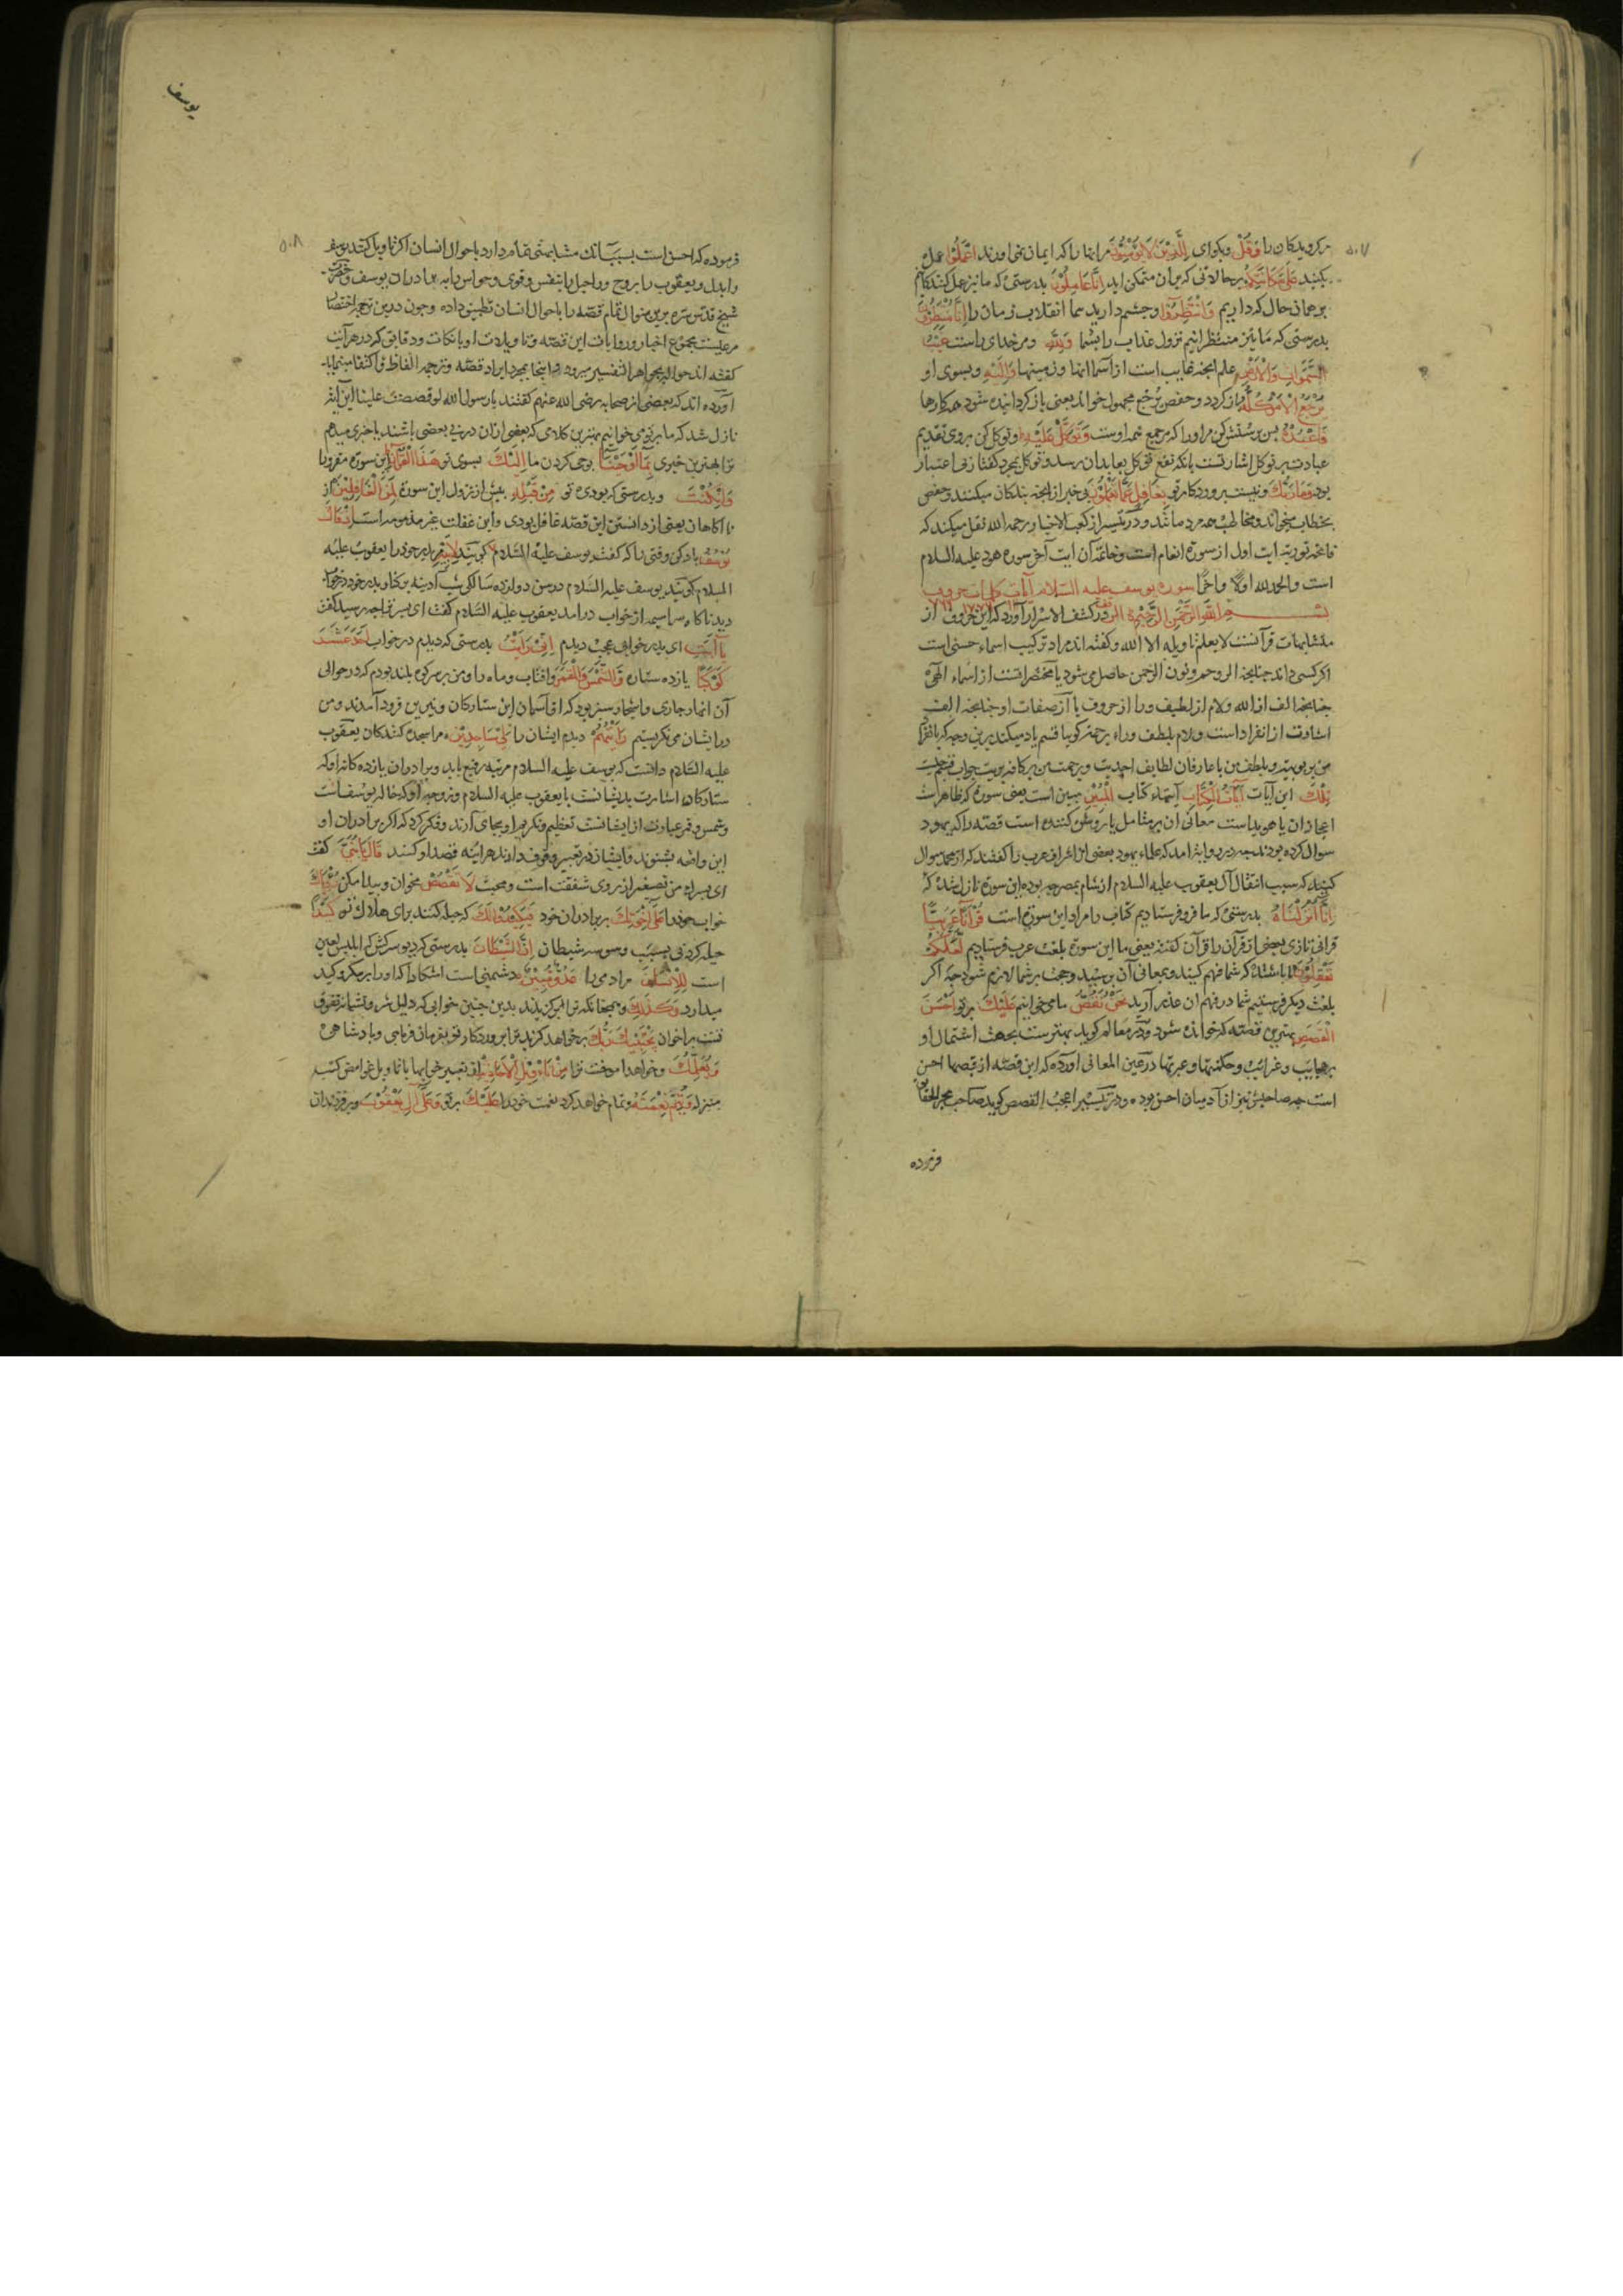 ۵۰۷
کرویدکان را وَقُلْ وبکوای لِلَّذِینَ لَا یُؤْمِنُونَ مرانها را که ایمان نمی اورند اعْمَلُوا عمل
بکنید عَلَی مَکَانَتِکُمْ برحالاتی که بران متمکن اید إِنَّا عَامِلُونَ بدرستی که ما نیز عمل کنندکانیم
برهمان حال که داریم وَانْتَظِرُوا وچشم دارید شما انقلاب زمان را إِنَّا مُنْتَظِرُونَ
بدرستی که ما نیز منتظرانیم نزول عذاب را بشما وَلِلَّهِ ومرخدای راست غَیْبُ
السَّمَوَاتِ وَالْأَرْضِ علم انچه غایب است از اسمانها وزمینها وَإِلَیْهِ وبسوی او
یُرْجَعُ الْأَمْرُ کُلُّهُ باز کردد وحفص یُرجَع مجهول خواند یعنی باز کردانیده شود همه کارها
فَاعْبُدْهُ پس پرستش کن مراورا که مرجع همه اوست وَتَوَکَّلْ عَلَیْهِ وتوکل کن بروی تقدیم
عبادت بر توکل اشارتست بانکه نفع توکل بعابدان رسد وتوکل بمجرد کفتار بی اعتبار
بود وَمَا رَبُّکَ ونیست پروردکار تو بِغَافِلٍ عَمَّا تَعْمَلُونَ بی خبر از انچه بندکان میکنند وحفص
بخطاب میخواند ومخاطب همه مردمانند ودر تیسیر از کعب الاخبار رحمه الله نقل میکند که
فاتحه توریة ایت اول از سوره انعام است وخاتمه آن ایت آخر سوره هود علیه السلام
است والحمد لله اولا واخرا سوره یوسف علیه السلام
بسم الله الرحمن الرحیم الر در کشف الاسرار آورده که این حروف از
متشابهات قرآنست لا یعلم تاویله الا الله وکفته اند مراد ترکیب اسماء حسنی است
اکر کسی داند چنانچه الر وحم ونون الرحمن حاصل می شود یا مختصراتست از اسماء الهی
چنانچه الف از الله ولام از لطیف ورا از حروف یا از صفات او چنانچه الف
اشارت از انفراد است ولام بلطف وراء برحمت کویا قسم یاد میکند برین وجه که بانفراد
من بربوبیت وبلطف من با عارفان لطایف احدیت وبرحمت من بر کافه بریت جواب قسم چیست
تِلْکَ این آیات آیَاتُ الْکِتَابِ کتاب الْمُبِینِ مبین است یعنی سوره که ظاهر است
اعجاز ان یا هویداست معانی ان بر متامل یا روشن کننده است قصه را که یهود
سوال کرده بودند چه یهود بعضی از اشراف عرب را کفتند که از محمد سوال
کنید که سبب انتقال آل یعقوب علیه السلام از شام بمصر چه بوده این سوره نازل شد که
إِنَّا أَنْزَلْنَاهُ بدرستی که ما فرو فرستادیم کتاب را مراد این سوره است قُرْآنًا عَرَبِیًّا
قرانی تازی بعضی از قرآن را قرآن کفته یعنی ما این سوره بلغت عرب فرستادیم لَعَلَّکُمْ
تَعْقِلُونَ تا باشد که شما فهم کنید وبمعانی آن برسید وحجت بر شما لازم شود چه اکر
بلغت دیکر فرستیم شما در فهم ان عذر آرید نَحْنُ نَقُصُّ ما می خوانیم عَلَیْکَ بر تو أَحْسَنَ
الْقَصَصِ بهترین قصه که خوانده شود ودر معالم کوید بهترست بجهت اشتمال او
بر عجایب وغرایب وحکمتها وعبرتها در عین المعانی آورده که این قصه از قصها احسن
است چه صاحبش نیز از آدمیان احسن بوده ودر تیسیر اعجب القصص کوید صاحب بحر الحقایق
فرموده
یوسف
۵۰۸
فرموده که احسن است بسبب آنک مشابهتی تمام دارد باحوال انسان اکر تاویل کنند یوسف
را بدل ویعقوب را بروح وراحیل را بنفس وقوی وحواس را به برادران یوسف وحضرت
شیخ قدس سره برین منوال تمام قصه را باحوال انسان تطبیق داده وچون درین ترجمه اختصار
مرعیست مجموع اخبار وروایات این قصه وتاویلات او با نکات ودقایق که در هر آیت
کفته اند حواله بجواهر التفسیر میرود واینجا بمجرد ایراد قصه وترجمه الفاظ اکتفا مینماید
آورده اند که بعضی از صحابه رضی الله عنهم کفتند یا رسول الله لو قصصت علینا این آیة
نازل شد که ما بر تو می خوانیم بهترین کلامی که بعضی ازان در پی بعضی باشند یا خبر میدهم
ترا بهترین خبری بِمَا أَوْحَیْنَا بوحی کردن ما إِلَیْکَ بسوی تو هَذَا الْقُرْآنَ این سوره مقروا
وَإِنْ کُنْتَ وبدرستی که بودی تو مِنْ قَبْلِهِ پیش از نزول این سوره لَمِنَ الْغَافِلِینَ از
ناآکاهان یعنی از دانستن این قصه غافل بودی واین غفلت غیر مذمومه است إِذْ قَالَ
یُوسُفُ یاد کن وقتی را که کفت یوسف علیه السلام لِأَبِیهِ مر پدر خود را یعقوب علیه
السلام کویند یوسف علیه السلام در سن دوازده سالکی شب آدینه بر کنار پدر خود در خواب
دید ناکاه سراسیمه از خواب درامد یعقوب علیه السلام کفت ای پسر ترا چه رسید کفت
یَا أَبَتِ ای پدر خوابی عجب دیدم إِنِّی رَأَیْتُ بدرستی که دیدم در خواب أَحَدَ عَشَرَ
کَوْکَبًا یازده ستاره وَالشَّمْسَ وَالْقَمَرَ وافتاب وماه را ومن بر سر کوه بلند بودم که در حوالی
آن انهار جاری واشجار سبز بود که از آسمان این ستارکان ونیرین فرود آمدند ومن
در ایشان می نکریستم رَأَیْتُهُمْ دیدم ایشان را لِی سَاجِدِینَ مرا سجده کنندکان یعقوب
علیه السلام دانست که یوسف علیه السلام مرتبه رفیع یابد وبرادران یازده کانه او که
ستارکان اشارت بدیشانست با یعقوب علیه السلام وزوجه او که خاله یوسف است
وشمس وقمر عبارت از ایشانست تعظیم وتکریم او بجای آرند وفکر کرد که اکر برادران او
این واقعه بشنوند وایشان در تعبیر وقوف دارند هرآینه قصد او کنند قَالَ یَا بُنَیَّ کفت
ای پسرک من تصغیر از روی شفقت است ومحبت لَا تَقْصُصْ مخوان وپیدا مکن رُؤْیَاکَ
خواب خود را عَلَی إِخْوَتِکَ بر برادران خود فَیَکِیدُوا لَکَ که حیله کنند برای هلاک تو کَیْدًا
حیله کردنی بسبب وسوسه شیطان إِنَّ الشَّیْطَانَ بدرستی که دیو سرکش که ابلیس لعین
است لِلْإِنْسَانِ مر ادمی را عَدُوٌّ مُبِینٌ دشمنی است اشکارا که اورا بر مکر وکید
میدارد وَکَذَلِکَ وهمچنانکه ترا برکزیدند بدین چنین خوابی که دلیل شرف وتفوق
تست بر اخوان یَجْتَبِیکَ رَبُّکَ برخواهد کزید ترا پروردکار تو بفرمان فرمایی وپادشاهی
وَیُعَلِّمُکَ وخواهد اموخت ترا مِنْ تَأْوِیلِ الْأَحَادِیثِ از تعبیر خوابها یا تاویل غوامض کتب
منزله وَیُتِمُّ نِعْمَتَهُ وتمام خواهد کرد نعمت خود را عَلَیْکَ بر تو وَعَلَی آلِ یَعْقُوبَ وبر فرزندان